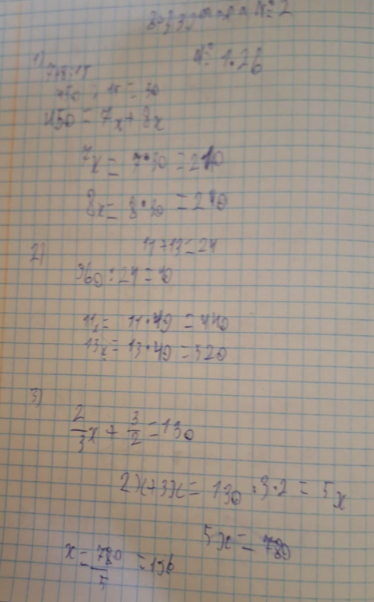 № 1.26
1) 7+8=15
450 : 15 = 30
450 = 7x + 8x
7x = 7·30 = 210
8x = 8·30 = 240
2) 11+13=24
960 : 24 = 40
11x = 11·40 = 440
13x = 13·40 = 520
3)
2/3 x + 3/2 = 130
2x+3x = 130·3·2 = 5x
5x = 780
x = 780/5 = 156